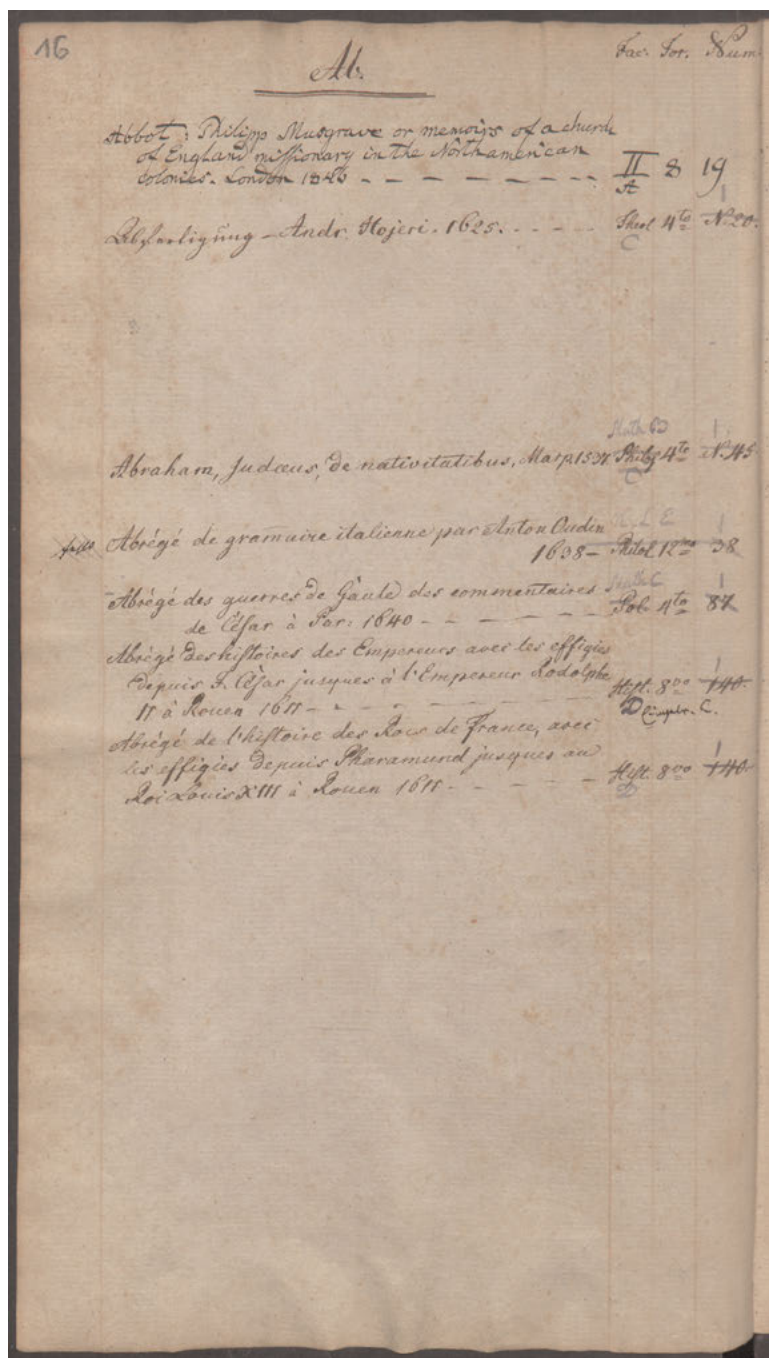 16
Ab.
Fac. For. Num
Abbot: Philipp Musgrave or memoirs of a church
of England missionary in the Northamerican
colonies. London 1846 - - - - - - - - - II 8 19
A
1
Abfertigung - Andr. Hojeri. 1625. - - - - Theol 4to No 20.
C
Math B 1
Abraham, Judæus, de nativitatibus, Marp. 1537 Philos 4to N. 45
C
1
Abrégé de gramaire italienne par Anton Oudin
1638 - Philol 12mo 38
C 1
Abrégé des guerres de Gaule des commentaires
de César à Par: 1640 - - - - - - Pol. 4to 87
Abrégé des histoires des Empereurs avec les effigies
depuis J. César jusques à l'Empereur Rodolphe 1
II à Rouen 1611 - - - - - - - - Hist. 8vo 140.
D C.
Abrégé de l'histoire des Rois de France, avec
les effigies depuis Pharamund jusques au 1
Roi Louis XIII à Rouen 1611 - - - - - - Hist. 8vo 140
D